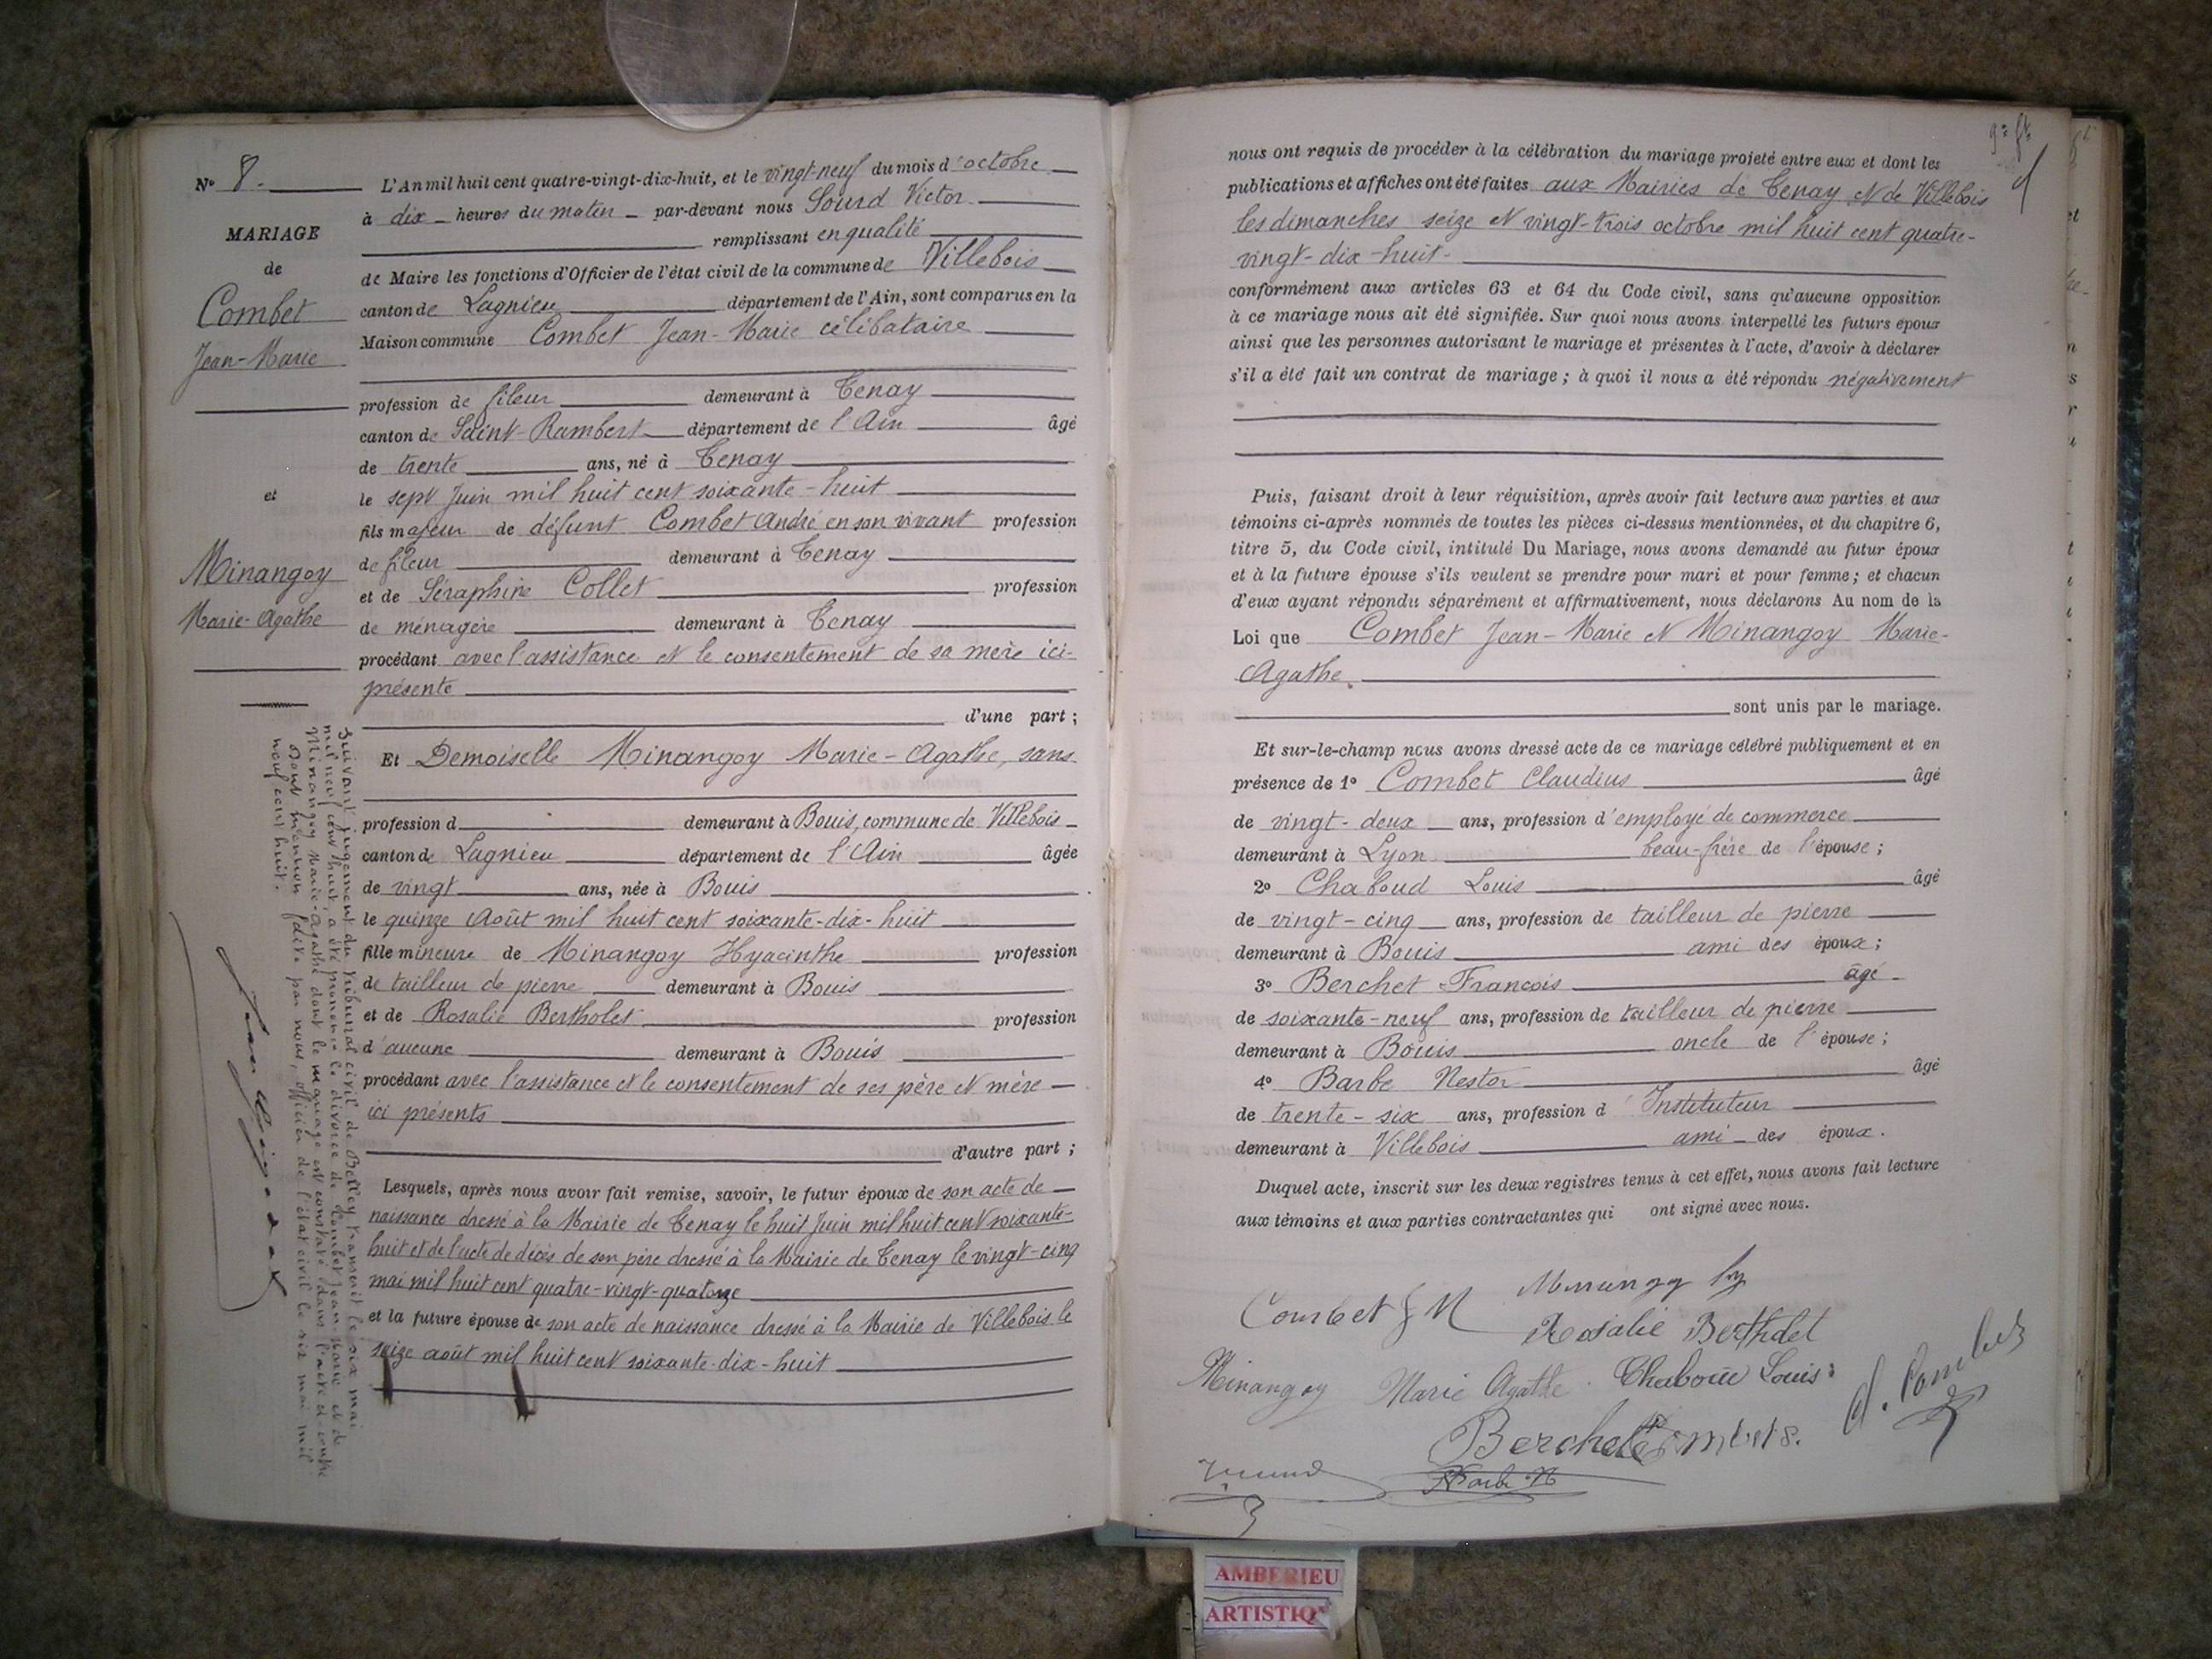 N° 8.
MARIAGE
de
Combet
Jean-Marie
et
Minangoy
Marie-Agathe
L'An mil huit cent quatre-vingt-dix-huit, et le vingt-neuf du mois d'octobre
à dix heures du matin par-devant nous Sourd Victor
remplissant en qualité
de Maire les fonctions d'Officier de l'état civil de la commune de Villebois
canton de Lagnieu département de l'Ain, sont comparus en la
Maison commune Combet Jean-Marie célibataire
profession de fileur demeurant à Tenay
canton de Saint-Rambert département de l'Ain âgé
de trente ans, né à Tenay
le sept Juin mil huit cent soixante-huit
fils majeur de défunt Combet André en son vivant profession
de fileur demeurant à Tenay
et de Séraphine Collet profession
de ménagère demeurant à Tenay
procédant avec l'assistance et le consentement de sa mère ici-
présente
d'une part ;
Et Demoiselle Minangoy Marie-Agathe, sans
profession d demeurant à Bouis, commune de Villebois
canton de Lagnieu département de l'Ain âgée
de vingt ans, née à Bouis
le quinze Août mil huit cent soixante-dix-huit
fille mineure de Minangoy Hyacinthe profession
de tailleur de pierre demeurant à Bouis
et de Rosalie Bertholet profession
d'aucune demeurant à Bouis
procédant avec l'assistance et le consentement de ses père et mère
ici présents
d'autre part ;
Lesquels, après nous avoir fait remise, savoir, le futur époux de son acte de
naissance dressé à la Mairie de Tenay le huit Juin mil huit cent soixante-
huit et de l'acte de décès de son père dressé à la Mairie de Tenay le vingt-cinq
mai mil huit cent quatre-vingt-quatorze
et la future épouse de son acte de naissance dressé à la Mairie de Villebois le
seize août mil huit cent soixante-dix-huit
Suivant jugement du tribunal civil de Belley transcrit le six mai
mil neuf cent huit, a été prononcé le divorce de Combet Jean-Marie et de
Minangoy Marie-Agathe dont le mariage est constaté dans l'acte ci-contre
Dont mention faite par nous, officier de l'état civil le six mai mil
neuf cent huit.
nous ont requis de procéder à la célébration du mariage projeté entre eux et dont les
publications et affiches ont été faites aux Mairies de Tenay et de Villebois
les dimanches seize et vingt-trois octobre mil huit cent quatre-
vingt-dix-huit-
conformément aux articles 63 et 64 du Code civil, sans qu'aucune opposition
à ce mariage nous ait été signifiée. Sur quoi nous avons interpellé les futurs époux
ainsi que les personnes autorisant le mariage et présentes à l'acte, d'avoir à déclarer
s'il a été fait un contrat de mariage ; à quoi il nous a été répondu négativement
Puis, faisant droit à leur réquisition, après avoir fait lecture aux parties et aux
témoins ci-après nommés de toutes les pièces ci-dessus mentionnées, et du chapitre 6,
titre 5, du Code civil, intitulé Du Mariage, nous avons demandé au futur époux
et à la future épouse s'ils veulent se prendre pour mari et pour femme ; et chacun
d'eux ayant répondu séparément et affirmativement, nous déclarons Au nom de la
Loi que Combet Jean-Marie et Minangoy Marie-
Agathe
sont unis par le mariage.
Et sur-le-champ nous avons dressé acte de ce mariage célébré publiquement et en
présence de 1° Combet Claudius âgé
de vingt-deux ans, profession d'employé de commerce
demeurant à Lyon beau-frère de l'épouse ;
2° Chaboud Louis âgé
de vingt-cinq ans, profession de tailleur de pierre
demeurant à Bouis ami des époux ;
3° Berchet François âgé
de soixante-neuf ans, profession de tailleur de pierre
demeurant à Bouis oncle de l'épouse ;
4° Barbe Nestor âgé
de trente-six ans, profession d'Instituteur
demeurant à Villebois ami des époux.
Duquel acte, inscrit sur les deux registres tenus à cet effet, nous avons fait lecture
aux témoins et aux parties contractantes qui ont signé avec nous.
Combet J M
Minangoy hy
Rosalie Bertholet
Minangoy Marie Agathe
Chaboud Louis
C. Combet
Berchet
Combet S.
Barbe N
AMBERIEU
ARTISTIQ